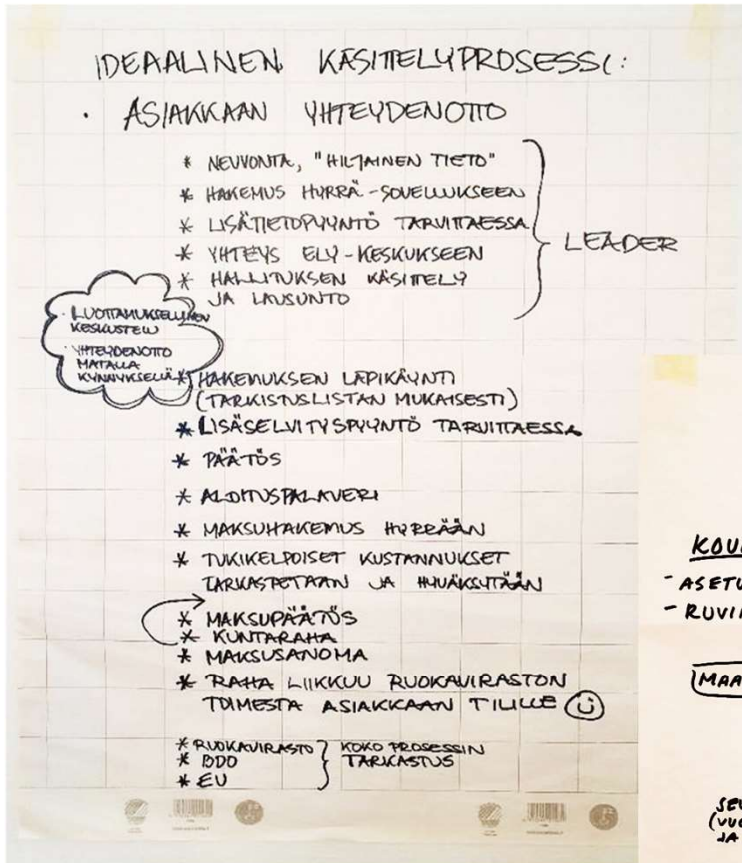 IDEAALINEN KÄSITTELYPROSESSI:
· ASIAKKAAN YHTEYDENOTTO
* NEUVONTA, "HILJAINEN TIETO"
* HAKEMUS HYRRÄ-SOVELLUKSEEN
* LISÄTIETOPYYNTÖ TARVITTAESSA
* YHTEYS ELY-KESKUKSEEN
* HALLITUKSEN KÄSITTELY
JA LAUSUNTO
LEADER
· LUOTTAMUKSELLINEN
KESKUSTELU
· YHTEYDENOTTO
MATALLA
KYNNYKSELLÄ
* HAKEMUKSEN LÄPIKÄYNTI
(TARKISTUSLISTAN MUKAISESTI)
* LISÄSELVITYSPYYNTÖ TARVITTAESSA
* PÄÄTÖS
* ALOITUSPALAVERI
* MAKSUHAKEMUS HYRRÄÄN
* TUKIKELPOISET KUSTANNUKSET
TARKASTETAAN JA HYVÄKSYTÄÄN
* MAKSUPÄÄTÖS
* KUNTARAHA
* MAKSUSANOMA
* RAHA LIIKKUU RUOKAVIRASTON
TOIMESTA ASIAKKAAN TILILLE
* RUOKAVIRASTO
* BDO
* EU
KOKO PROSESSIN
TARKASTUS
KOU
- ASETU
- RUVI
MAA
SEU
(VUO
JA